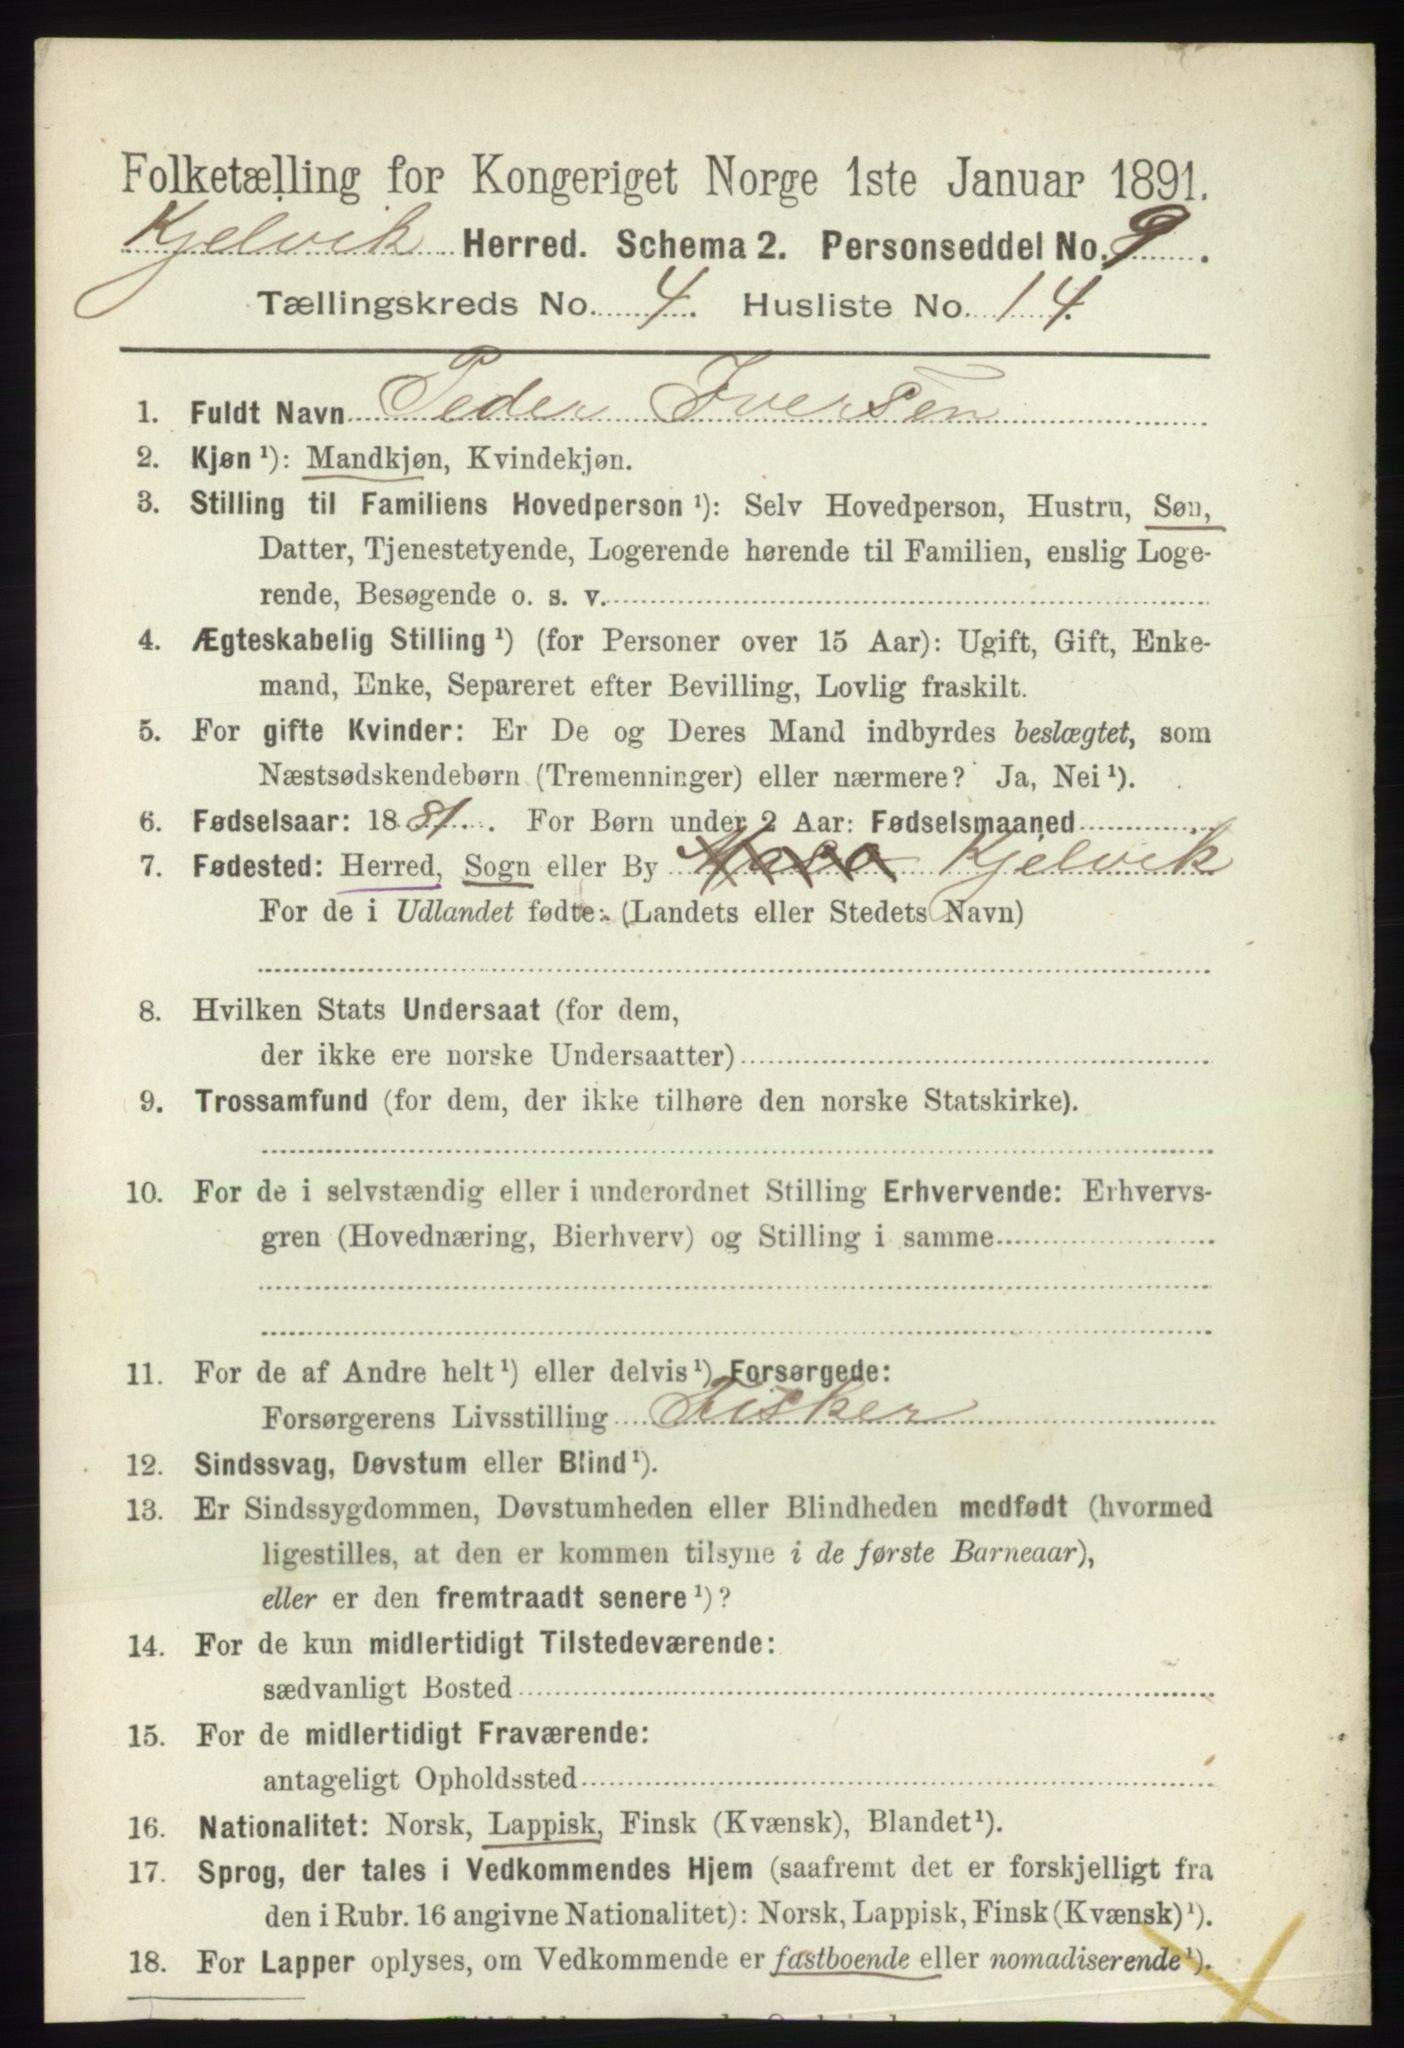 Folketælling for Kongeriget Norge 1ste Januar 1891.
Kjelvik Herred. Schema 2. Personseddel No. 9.
Tællingskreds No. 4. Husliste No. 14.
1. Fuldt Navn Peder Iversen
2. Kjøn ¹): Mandkjøn, Kvindekjøn.
3. Stilling til Familiens Hovedperson ¹): Selv Hovedperson, Hustru, Søn,
Datter, Tjenestetyende, Logerende hørende til Familien, enslig Loge-
rende, Besøgende o. s. v.
4. Ægteskabelig Stilling ¹) (for Personer over 15 Aar): Ugift, Gift, Enke-
mand, Enke, Separeret efter Bevilling, Lovlig fraskilt.
5. For gifte Kvinder: Er De og Deres Mand indbyrdes beslægtet, som
Næstsødskendebørn (Tremenninger) eller nærmere? Ja, Nei ¹).
6. Fødselsaar: 1881. For Børn under 2 Aar: Fødselsmaaned
7. Fødested: Herred, Sogn eller By Kjelvik
For de i Udlandet fødte: (Landets eller Stedets Navn)
8. Hvilken Stats Undersaat (for dem,
der ikke ere norske Undersaatter)
9. Trossamfund (for dem, der ikke tilhøre den norske Statskirke).
10. For de i selvstændig eller i underordnet Stilling Erhvervende: Erhvervs-
gren (Hovednæring, Bierhverv) og Stilling i samme
11. For de af Andre helt ¹) eller delvis ¹) Forsørgede:
Forsørgerens Livsstilling Fisker
12. Sindssvag, Døvstum eller Blind ¹).
13. Er Sindssygdommen, Døvstumheden eller Blindheden medfødt (hvormed
ligestilles, at den er kommen tilsyne i de første Barneaar),
eller er den fremtraadt senere ¹)?
14. For de kun midlertidigt Tilstedeværende:
sædvanligt Bosted
15. For de midlertidigt Fraværende:
antageligt Opholdssted
16. Nationalitet: Norsk, Lappisk, Finsk (Kvænsk), Blandet ¹).
17. Sprog, der tales i Vedkommendes Hjem (saafremt det er forskjelligt fra
den i Rubr. 16 angivne Nationalitet): Norsk, Lappisk, Finsk (Kvænsk) ¹).
18. For Lapper oplyses, om Vedkommende er fastboende eller nomadiserende ¹).